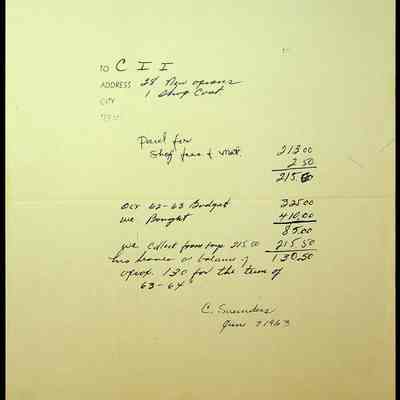 TO C I I
ADDRESS 28 New
1 Shop Coat
CITY
Paid for
Shop fees & Mat. 213 00
2 50
215.50
Our 62-63 Budget 325 00
We Bought 410,00
85 00
We Collect from 215 00 215,50
This leaves a balance of 130.50
130 for the term of
63-64
C. Saunders
June 7 1963